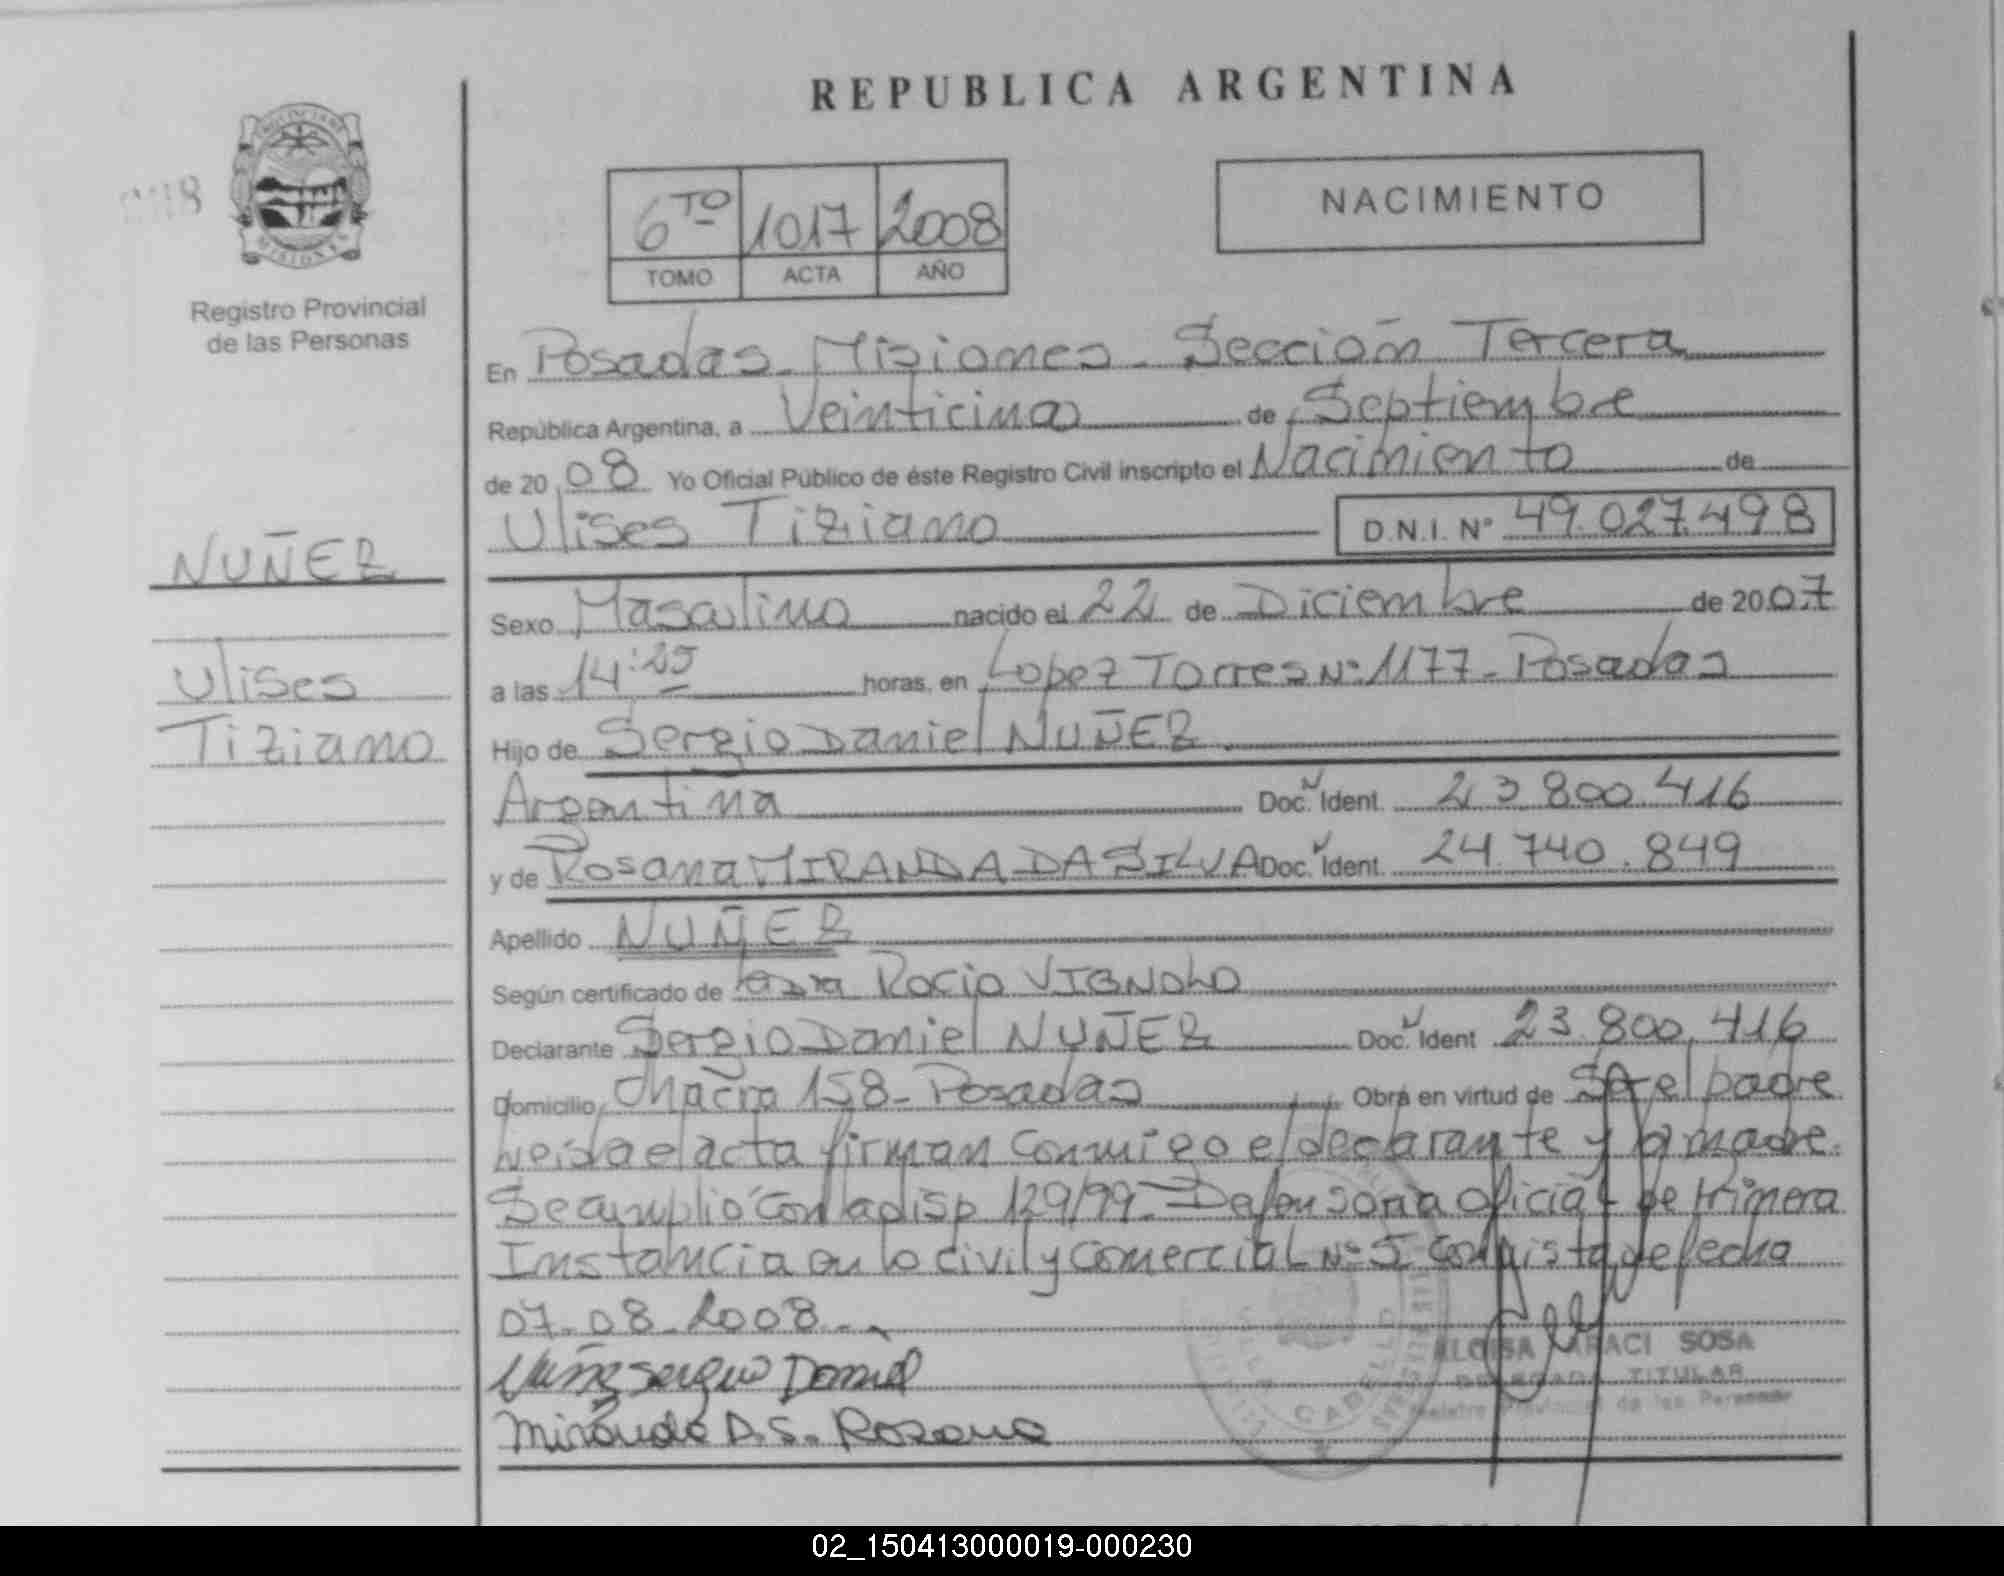 REPUBLICA ARGENTINA
6TO 1017 2008
TOMO ACTA AÑO
NACIMIENTO
Registro Provincial
de las Personas
En Posadas - Misiones - Sección Tercera
República Argentina, a Veinticinco de Septiembre
de 2008 Yo Oficial Público de éste Registro Civil inscripto el Nacimiento de
Ulises Tiziano D.N.I. Nº 49.027.498
NUÑEZ
Ulises
Tiziano
Sexo Masculino nacido el 22 de Diciembre de 2007
a las 14:25 horas, en Lopez Torres Nº 1177 - Posadas
Hijo de Sergio Daniel NUÑEZ.
Argentina Doc. Ident. 23.800.416
y de Rosana MIRANDA DA SILVA Doc. Ident. 24.740.849
Apellido NUÑEZ
Según certificado de Rocio VIGNOLO
Declarante Sergio Daniel NUÑEZ Doc. Ident 23.800.416
Domicilio Chacra 158 - Posadas Obra en virtud de Ser el padre
Leida el acta firman conmigo el declarante y la madre.
Se cumplió con la disp 129/99 - Defensoria Oficial de Primera
Instancia en lo civil y Comercial Nº 5 con vista de fecha
07-08-2008.-
Nuñez Sergio Daniel
Miranda D.S. Rosana
ARACI SOSA
DELEGADA TITULAR
Registro Provincial de las Personas
02_150413000019-000230